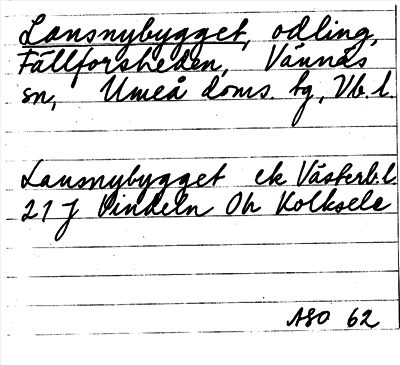 Lansnybygget, odling,
Fällforsheden, Vännäs
sn, Umeå doms. tg, Vb. l.
Lansnybygget ek Västerb.l.
21 J Vindeln Ov Kolksele
ASO 62